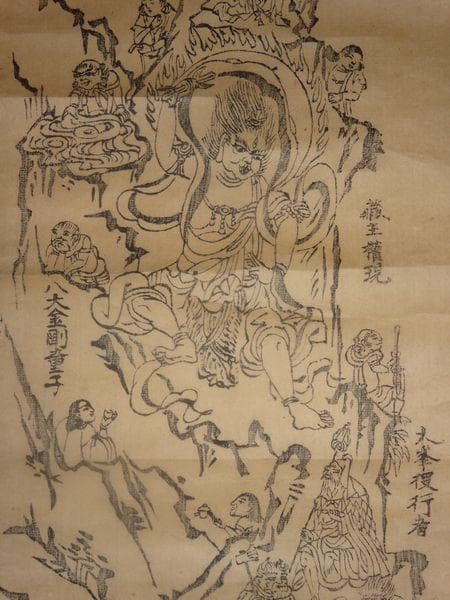 蔵王権現
八大金剛童子
大峯役行者